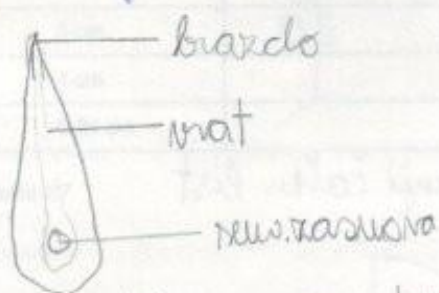 brazdo
vrat
sem. zasnova